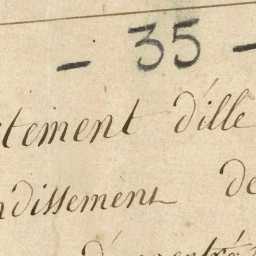 - 35 -
tement d'ille
ndissement de